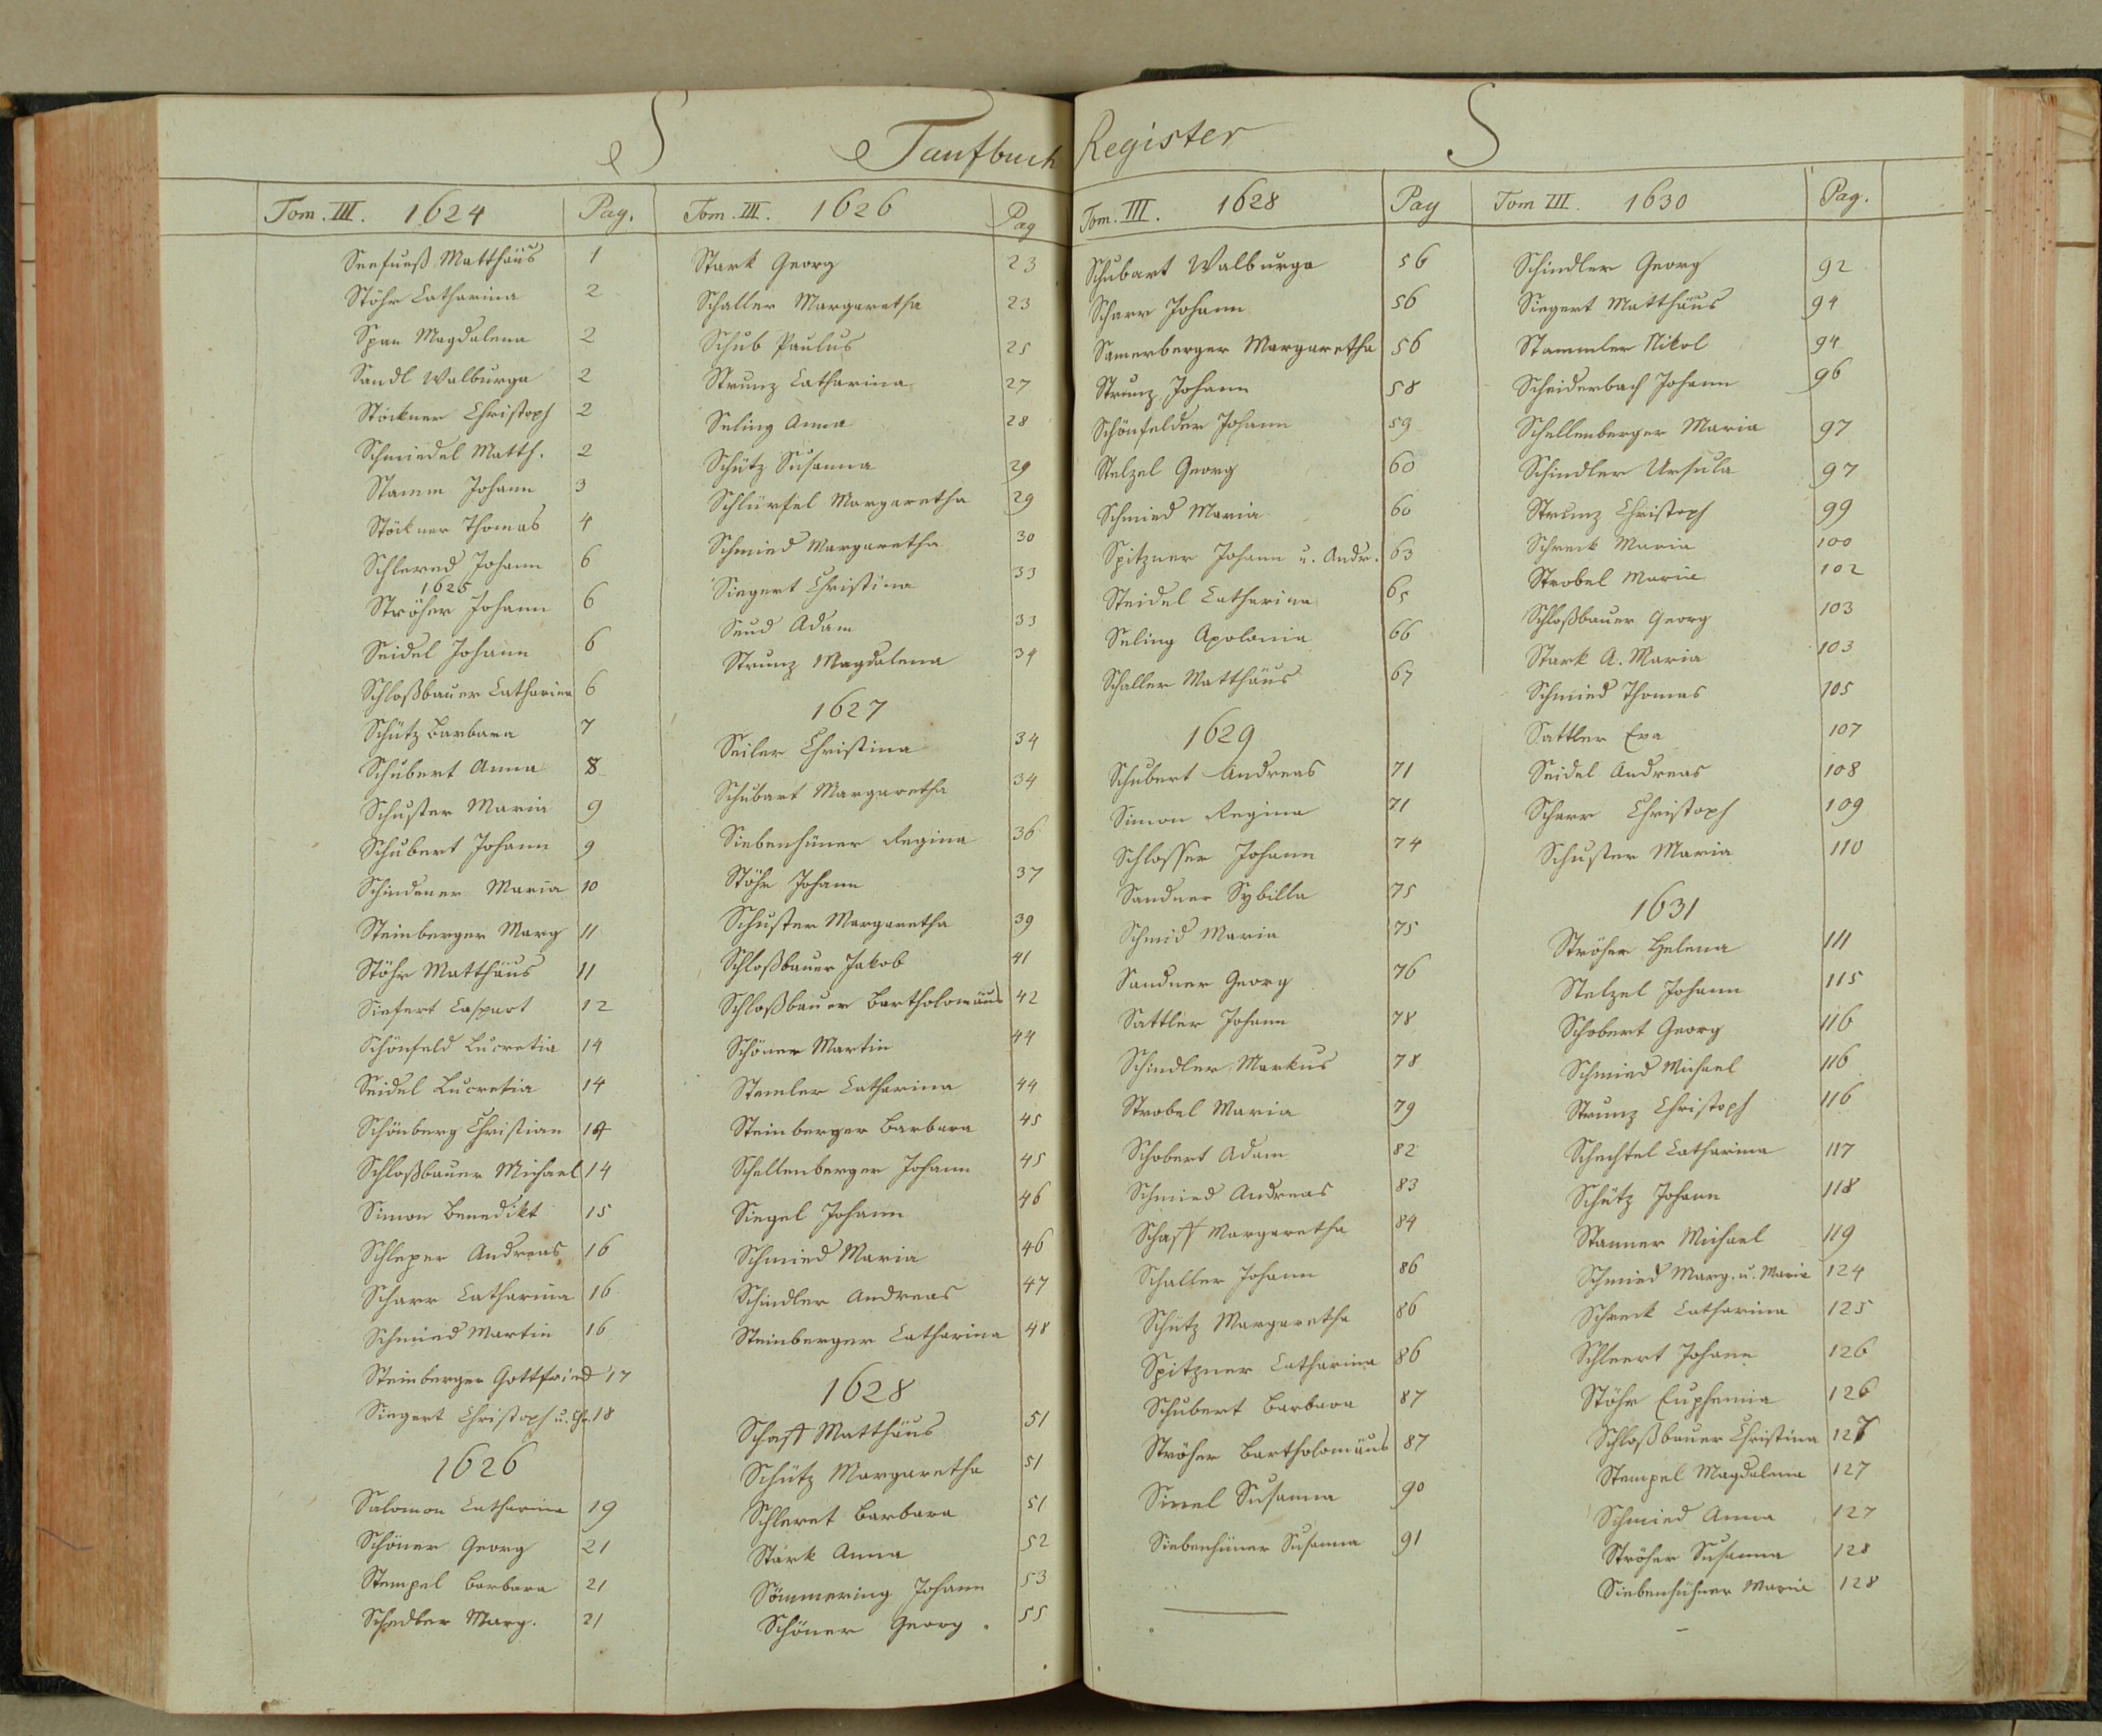 S Taufbuch Register S
Tom. III. 1624 Pag.
Seefueß Matthäus 1
Stöhr Catharina 2
Span Magdalena 2
Sandl Walburga 2
Stöckner Christoph 2
Schmiedel Matth. 2
Stamm Johann 3
Stöckner Thomas 4
Schlered Johann 6
1625
Ströher Johann 6
Seidel Johann 6
Schloßbauer Catharina 6
Schütz Barbara 7
Schubert Anna 8
Schuster Maria 9
Schubert Johann 9
Schindener Maria 10
Steinberger Marg 11
Stöhr Matthäus 11
Siefert Caspart 12
Schönfeld Lucretia 14
Seidel Lucretia 14
Schönberg Christian 14
Schloßbauer Michael 14
Simon Benedikt 15
Schleper Andreas 16
Scharr Catharina 16
Schmied Martin 16
Steinberger Gottfried 17
Siegert Christoph u. Chr. 18
1626
Salomon Catharina 19
Schöner Georg 21
Stempel Barbara 21
Schedler Marg. 21
Tom. III. 1626 Pag
Stark Georg 23
Schaller Margaretha 23
Schub Paulus 25
Strunz Catharina 27
Seling Anna 28
Schütz Susanna 29
Schlürfel Margaretha 29
Schmied Margaretha 30
Siegert Christina 33
Seud Adam 33
Strunz Magdalena 34
1627
Seiler Christina 34
Schubart Margaretha 34
Siebenhüner Regina 36
Stöhr Johann 37
Schuster Margaretha 39
Schloßbauer Jakob 41
Schloßbauer Bartholomäus 42
Schöner Martin 44
Stemler Catharina 44
Steinberger Barbara 45
Schellenberger Johann 45
Siegel Johann 46
Schmied Maria 46
Schindler Andreas 47
Steinberger Catharina 48
1628
Schaff Matthäus 51
Schütz Margaretha 51
Schleret Barbara 51
Stark Anna 52
Sömmering Johann 53
Schöner Georg. 55
Tom. III. 1628 Pag
Schubart Walburga 56
Scharr Johann 56
Samerberger Margaretha 56
Strunz Johann 58
Schönfelder Johann 59
Stelzel Georg 60
Schmied Maria 60
Spitzner Johann u. Andr. 63
Steidel Catharina 65
Seling Apolonia 66
Schaller Matthäus 67
1629
Schubert Andreas 71
Simon Regina 71
Schlosser Johann 74
Sandner Sybilla 75
Schmid Maria 75
Sandner Georg 76
Sattler Johann 78
Schindler Markus 78
Strobel Maria 79
Schobert Adam 82
Schmied Andreas 83
Schaff Margaretha 84
Schaller Johann 86
Schütz Margaretha 86
Spitzner Catharina 86
Schubert Barbara 87
Ströher Bartholomäus 87
Susanna 90
Siebenhüner Susanna 91
Tom III. 1630 Pag.
Schindler Georg 92
Siegert Matthäus 94
Stammler Nikol 94
Scheiderbach Johann 96
Schellenberger Maria 97
Schindler Ursula 97
Strunz Christoph 99
Schreck Maria 100
Strobel Maria 102
Schloßbauer Georg 103
Stark A. Maria 103
Schmied Thomas 105
Sattler Eva 107
Seidel Andreas 108
Scharr Christoph 109
Schuster Maria 110
1631
Ströher Helena 111
Stelzel Johann 115
Schobert Georg 116
Schmied Michael 116
Strunz Christoph 116
Schechtel Catharina 117
Schütz Johann 118
Stanner Michael 119
Schmied Marg. u. Maria 124
Schreck Catharina 125
Schleert Johann 126
Stöhr Euphemia 126
Schloßbauer Christina 127
Stempel Magdalena 127
Schmied Anna 127
Ströher Susanna 128
Siebenhühner Maria 128